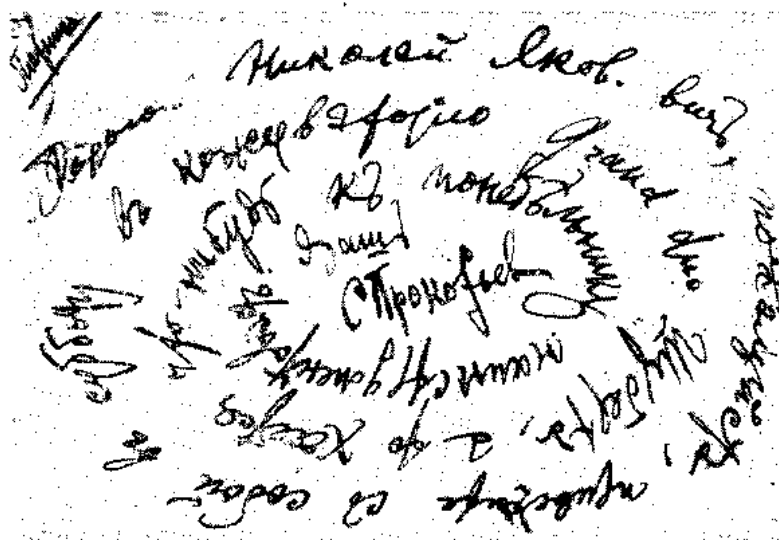 Дорого.
Николай Яков. вичъ,
пожалуйста,
привезите съ собой
въ субботу
въ консерваторію
Шуберта, а то хочется
что-нибудь къ понедѣльнику
наинструментовать.
Вашъ
С Прокофьев